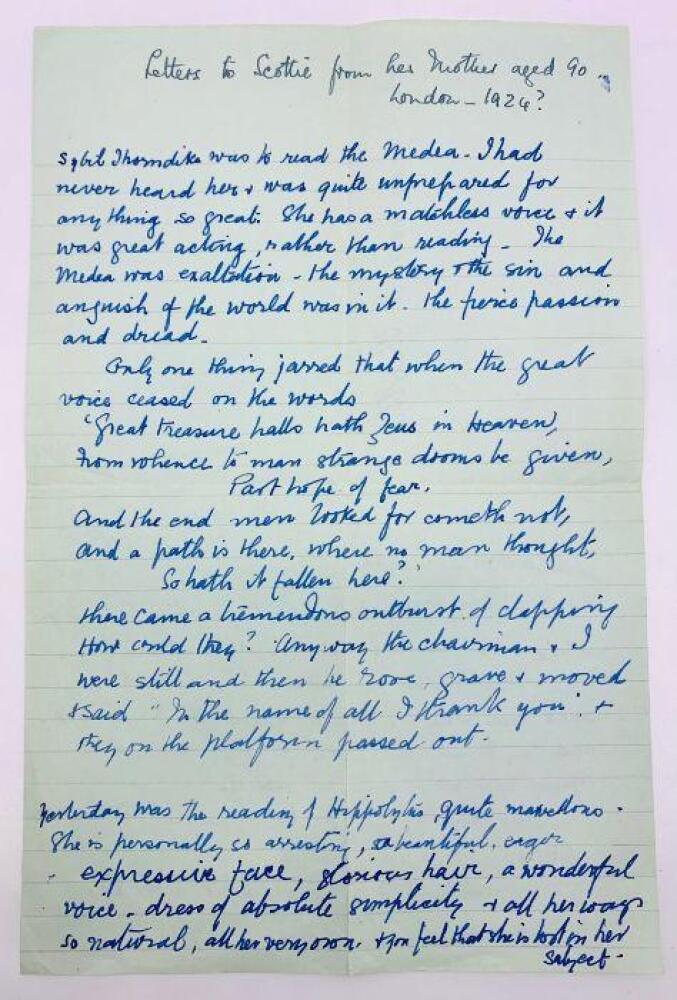 Letters to Scottie from her Mother aged 90 -
London - 1924?
Sybil Thorndike was to read the Medea - I had
never heard her & was quite unprepared for
anything so great. She has a matchless voice & it
was great acting, rather than reading - The
Medea was exaltation - the mystery & the sin and
anguish of the world was in it. The fierce passion
and dread -
Only one thing jarred that when the great
voice ceased on the words
'Great treasure halls hath Zeus in Heaven,
From whence to man strange dooms be given,
Past hope of fear,
And the end men looked for cometh not,
and a path is there, where no man thought,
So hath it fallen here?'
there came a tremendous outburst of clapping
How could they? Anyway the chairman & I
were still and then he rose, grave & moved
& said "In the name of all I thank you". &
they on the platform passed out.
Yesterday was the reading of Hippolytus, quite marvellous.
She is personally so arresting, so beautiful, eager
expressive face, glorious hair, a wonderful
voice - dress of absolute simplicity & all her ways
so natural, all her very own. & you feel that she is lost in her
subject -